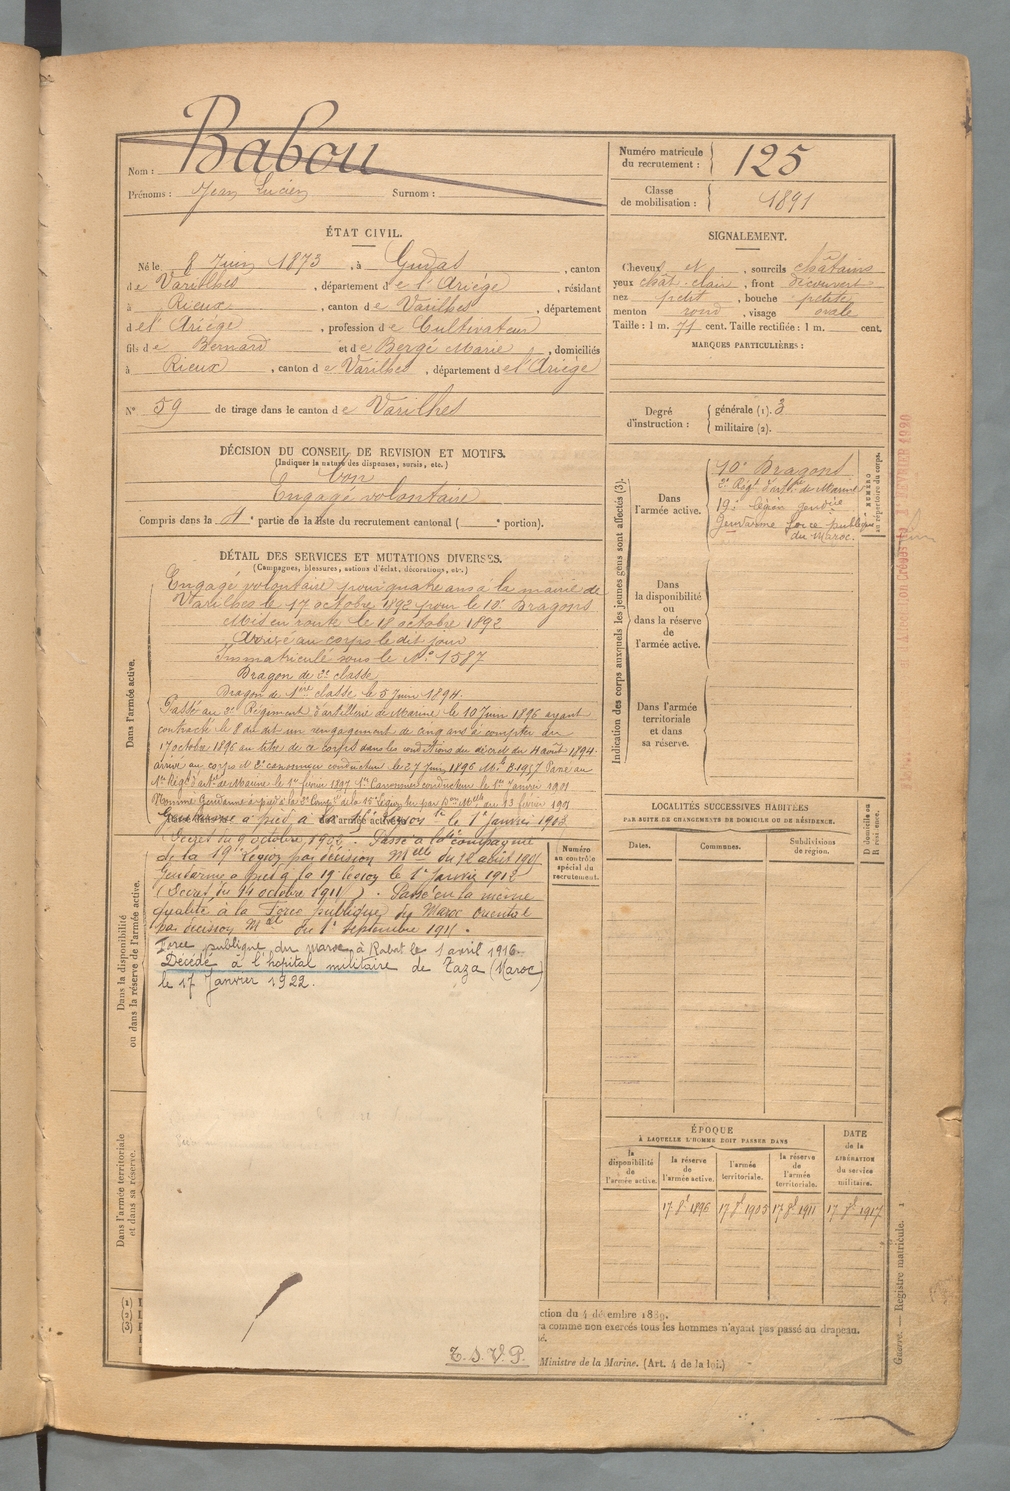 Nom : Babou
Prénoms : Jean Lucien Surnom :
Numéro matricule du recrutement : 125
Classe de mobilisation : 1891
ÉTAT CIVIL.
Né le 8 Juin 1873, à Gudas, canton
de Varilhes, département de l'Ariège, résidant
à Rieux, canton de Varilhes, département
de l'Ariège, profession de Cultivateur
fils de Bernard et de Bergé Marie, domiciliés
à Rieux, canton de Varilhes, département de l'Ariège
N° 59 de tirage dans le canton de Varilhes
SIGNALEMENT.
Cheveux et, sourcils châtains
yeux chât. clairs, front découvert
nez petit, bouche petite
menton rond, visage ovale
Taille : 1 m. 71 cent. Taille rectifiée : 1 m. cent.
MARQUES PARTICULIÈRES :
Degré d'instruction : générale (1). 3
militaire (2).
DÉCISION DU CONSEIL DE REVISION ET MOTIFS.
(Indiquer la nature des dispenses, sursis, etc.)
Bon
Engagé volontaire
Compris dans la 4e partie de la liste du recrutement cantonal ( e portion).
DÉTAIL DES SERVICES ET MUTATIONS DIVERSES.
(Campagnes, blessures, actions d'éclat, décorations, etc.)
Dans l'armée active.
Engagé volontaire pour quatre ans à la mairie de
Varilhes le 17 octobre 1892 pour le 10e Dragons
Mis en route le 18 octobre 1892
Arrivé au corps le dit jour
Immatriculé sous le N° 1587
Dragon de 2e classe
Dragon de 1ère classe le 5 Juin 1894.
Passé au 2e Régiment d'artillerie de Marine le 10 Juin 1896 ayant
contracté le 8 du dit un rengagement de cinq ans à compter du
17 octobre 1896 au titre de ce corps dans les conditions du décret du 4 août 1894
arrivé au corps et 2e canonnier conducteur le 27 Juin 1896 Mle B.1937 Passé au
1er Régt d'artie de Marine le 1er février 1897 1er Canonnier conducteur le 1er Janvier 1901
Nommé Gendarme à pied à la 2e Compie de la 15e Légion ter par Don Mlle du 13 février 1901
Gendarme à pied à la 15e Légion ter le 1er Janvier 1903
Décret du 9 octobre 1902. Passé à la compagnie
de la 19e Légion par décision Melle du 12 août 1905
Gendarme à pied à la 19e légion le 1er Janvier 1912
(Décret du 14 octobre 1911). Passé en la même
qualité à la Force publique du Maroc oriental
par décision Melle du 1er septembre 1911.
Force publique du Maroc, à Rabat le 1 avril 1916.
Décédé à l'hopital militaire de Taza (Maroc)
le 17 Janvier 1922.
T. S. V. P.
Dans la disponibilité ou dans la réserve de l'armée active.
Dans l'armée territoriale et dans sa réserve.
Numéro au contrôle spécial du recrutement.
Indication des corps auxquels les jeunes gens sont affectés (3).
Dans l'armée active.
10e Dragons
2e Régt d'artie de Marine
19e légion gendrie
Gendarme force publique
du Maroc.
NUMÉRO au répertoire du corps.
Dans la disponibilité ou dans la réserve de l'armée active.
Dans l'armée territoriale et dans sa réserve.
LOCALITÉS SUCCESSIVES HABITÉES
PAR SUITE DE CHANGEMENTS DE DOMICILE OU DE RÉSIDENCE.
D domicile ou R résidence.
Dates. Communes. Subdivisions de région.
ÉPOQUE
À LAQUELLE L'HOMME DOIT PASSER DANS
la disponibilité de l'armée active.
la réserve de l'armée active.
l'armée territoriale.
la réserve de l'armée territoriale.
DATE de la LIBÉRATION du service militaire.
17 8bre 1896 17 8bre 1905 17 8bre 1911 17 8bre 1917
ction du 4 décembre 1889.
ra comme non exercés tous les hommes n'ayant pas passé au drapeau.
Ministre de la Marine. (Art. 4 de la loi.)
Guerre. — Registre matricule. 1